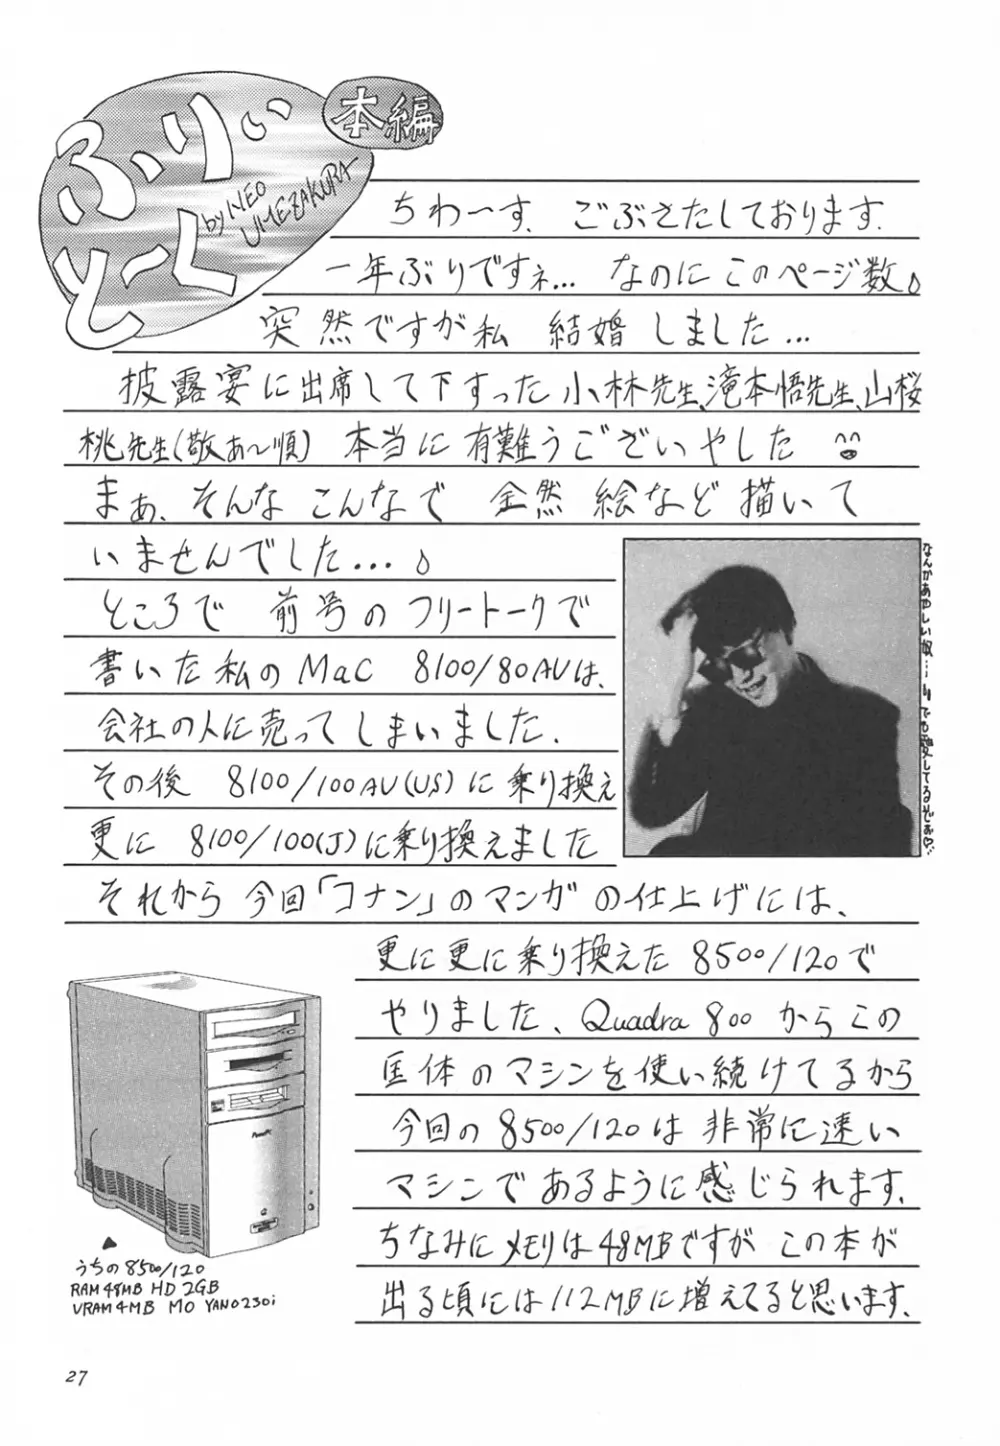 ふりぃ
とーく
by NEO
UMEZAKURA
本編
ちわ〜す、ごぶさたしております.
一年ぶりですネ… なのにこのページ数。
突然ですが私 結婚しました…
披露宴に出席して下すった小林先生、滝本悟先生、山桜
桃先生(敬あ〜順) 本当に有難うございやした
まぁ、そんなこんなで 全然 絵など描いて
いませんでした…。
ところで 前号のフリートークで
書いた私のMaC 8100/80AVは、
会社の人に売ってしまいました.
その後 8100/100AV(US)に乗り換え
更に 8100/100(J)に乗り換えました
それから今回「コナン」のマンガの仕上げには、
更に更に乗り換えた 8500/120で
やりました、Quadra 800からこの
匡体のマシンを使い続けてるから
今回の8500/120は非常に速い
マシンであるように感じられます.
ちなみにメモリは48MBですがこの本が
出る頃には112MBに増えてると思います.
なんかあやしい奴… でも愛してるぞぉ♡…
うちの8500/120
RAM48MB HD 2GB
VRAM4MB MO YANO230i
27